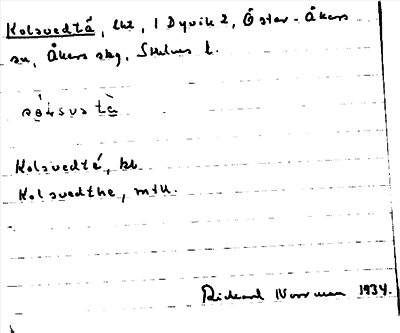 Kolsvedtå, lht, 1 Dyvik 2, Öster-Åkers
sn, Åkers skg, Sthlms l.
Kolsvedtå, kb
Kolsvedthe, mtk.
Rickard Norrman 1934.